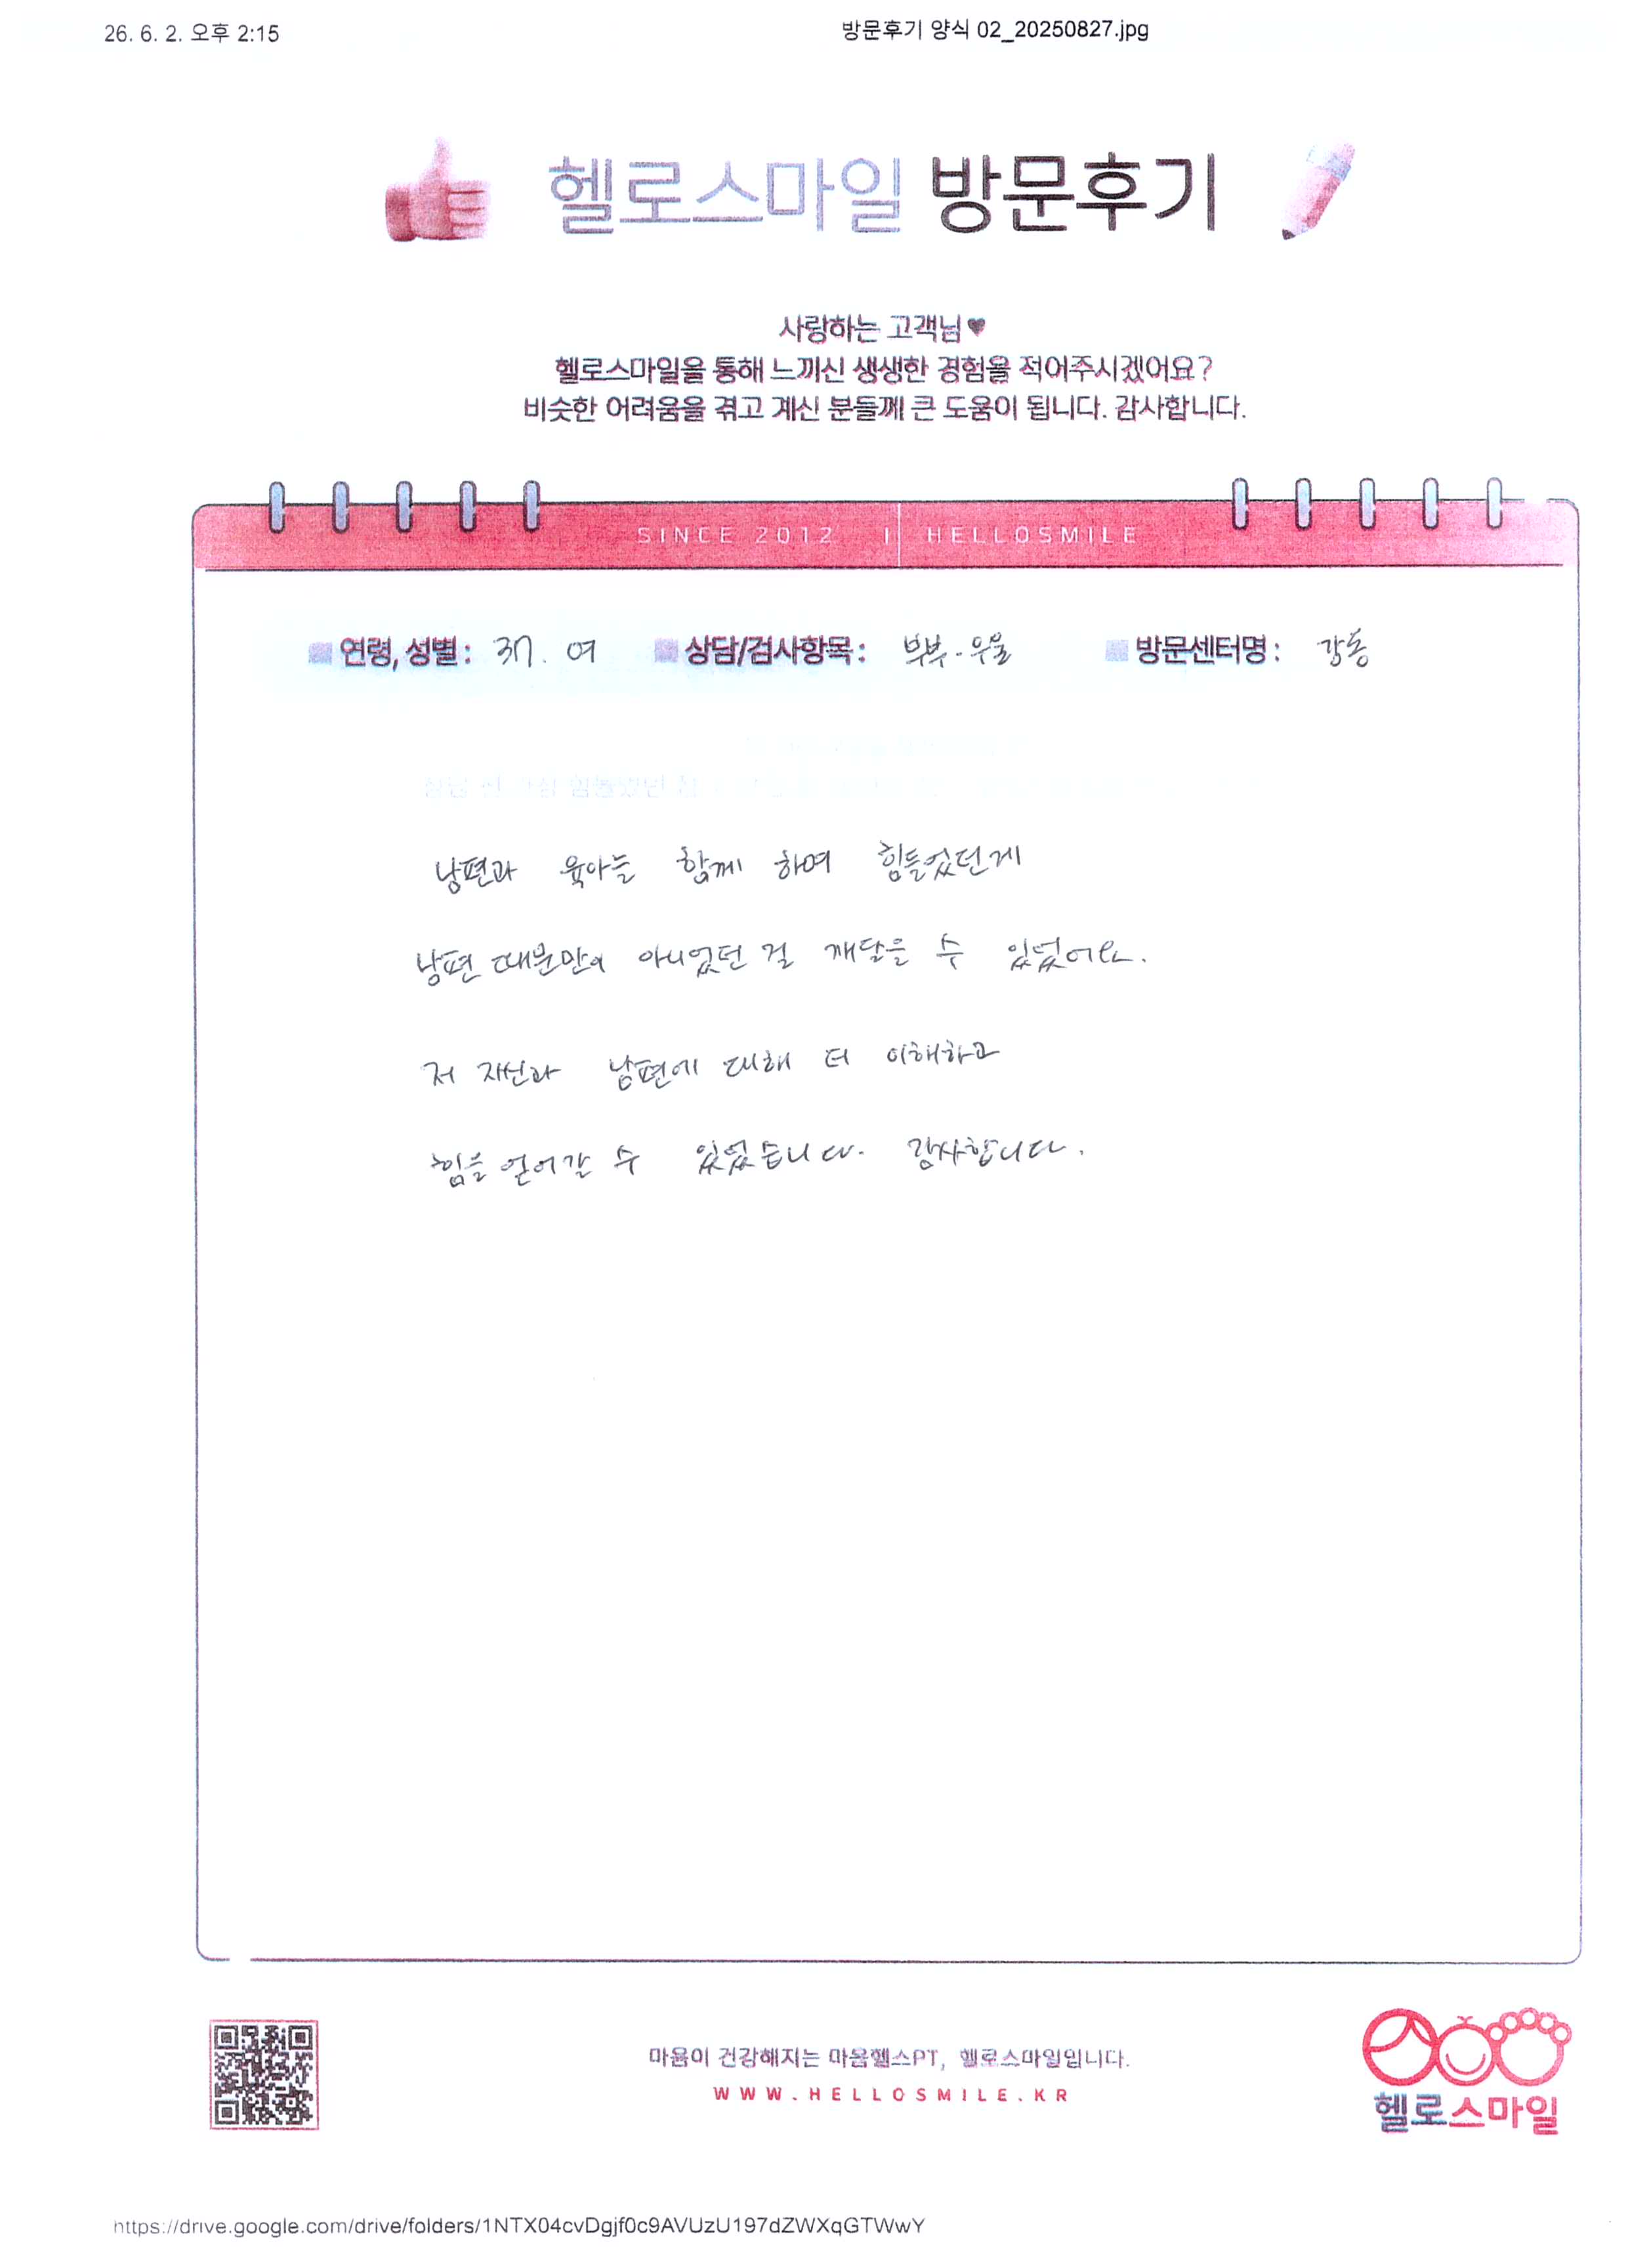 26. 6. 2. 오후 2:15
방문후기 양식 02_20250827.jpg
헬로스마일 방문후기
사랑하는 고객님♥
헬로스마일을 통해 느끼신 생생한 경험을 적어주시겠어요?
비슷한 어려움을 겪고 계신 분들께 큰 도움이 됩니다. 감사합니다.
SINCE 2012 | HELLOSMILE
연령, 성별 : 37. 여 상담/검사항목 : 부부-우울 방문센터명 : 강동
남편과 육아를 함께 하여 힘들었던게
남편 때문만이 아니었던 걸 깨달을 수 있었어요.
저 자신과 남편에 대해 더 이해하고
힘을 얻어갈 수 있었습니다. 감사합니다.
마음이 건강해지는 마음헬스PT, 헬로스마일입니다.
WWW.HELLOSMILE.KR
헬로스마일
https://drive.google.com/drive/folders/1NTX04cvDgjf0c9AVUzU197dZWXqGTWwY